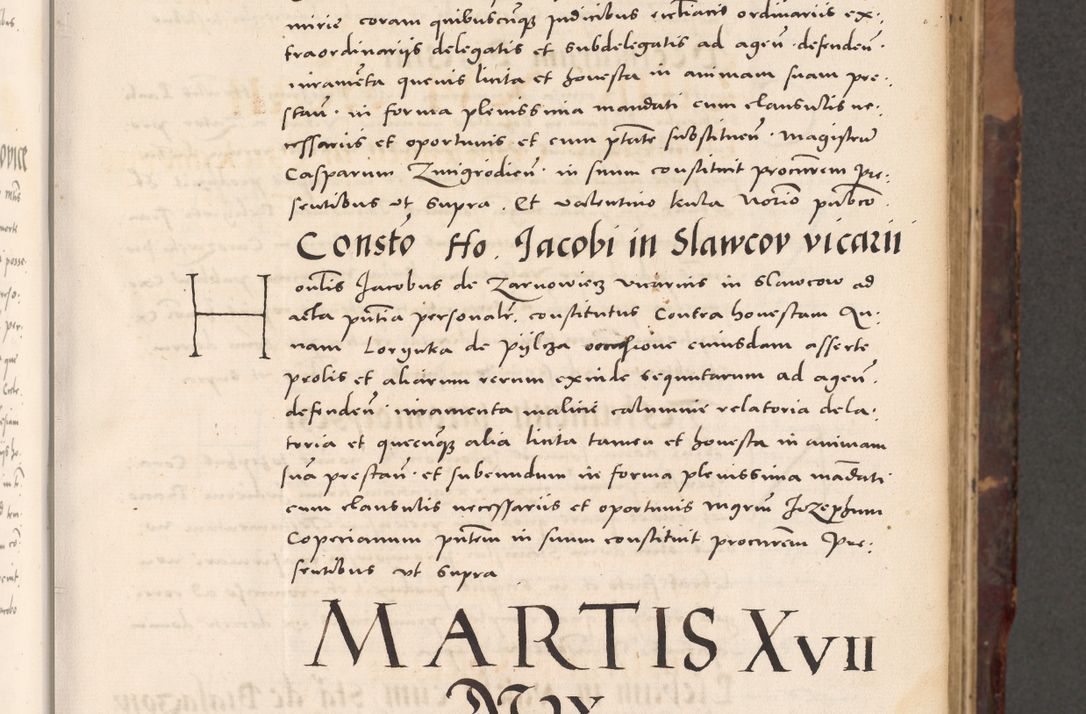 mirie coram quibuscūqʒ Judicibus ecclīacis ordinariis ex-
traordinarijs delegatis et subdelegatis ad agen̄ · defenden̄ ·
iuramēta quevis licita et honesta in animam suam pre-
stan̄ · in forma plenissima mandati cum clausulis ne-
cessariis et oportunis et cum ptāte substituen̄ · Magistrū
Casparum Zmigrodien̄ · in suum constituit procūrem Pre-
sentibus vt supra . Et valentino kula Norīo pub̄co
Constō Ho. Jacobi in Slawcov vicarii
Honl̄is Jacobus de Zarnowiecz vicarius in Slawcow ad
acta pn̄tia personalr̄. constitutus Contra honestam An-
nam Lorynka de Pijlcza occasione cuiusdam asserte
prolis et aliarum rerum exinde sequutarum ad agen̄ ·
defenden̄ · iuramenta malicie calumnie relatoria dela-
toria et quecūqʒ alia licita tamen et honesta in animam
suā prestan̄ · et subeundum in forma plenissima mādati
cum clausulis necessariis et oportunis mgrūm Jozephum
Coperianum pn̄tem in suum constituit procurēm Pre-
sentibus vt supra
MARTIS XVII